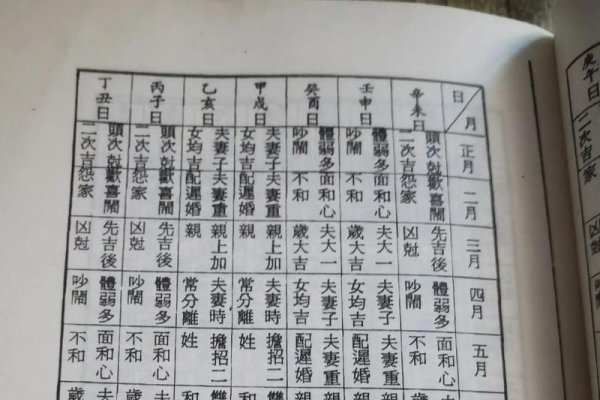 庚午日
二次吉
怨家
凶尅
日
月
正月
二月
三月
四月
五月
辛未日
頭次尅
二次吉
歡喜鬧
怨家
先吉後
凶尅
體弱多
吵鬧
面和心
不和
壬申日
體弱多
吵鬧
面和心
不和
夫大一
歲大吉
夫妻子
女均吉
夫妻重
配遲婚
癸酉日
體弱多
吵鬧
面和心
不和
夫大一
歲大吉
夫妻子
女均吉
夫妻重
配遲婚
甲戌日
夫妻子
女均吉
夫妻重
配遲婚
親上加
親
夫妻時
常分離
擔招二
姓
乙亥日
夫妻子
女均吉
夫妻重
配遲婚
親上加
親
夫妻時
常分離
擔招二
姓
丙子日
頭次尅
二次吉
歡喜鬧
怨家
先吉後
凶尅
體弱多
吵鬧
面和心
不和
丁丑日
頭次尅
二次吉
歡喜鬧
怨家
先吉後
凶尅
體弱多
吵鬧
面和心
不和